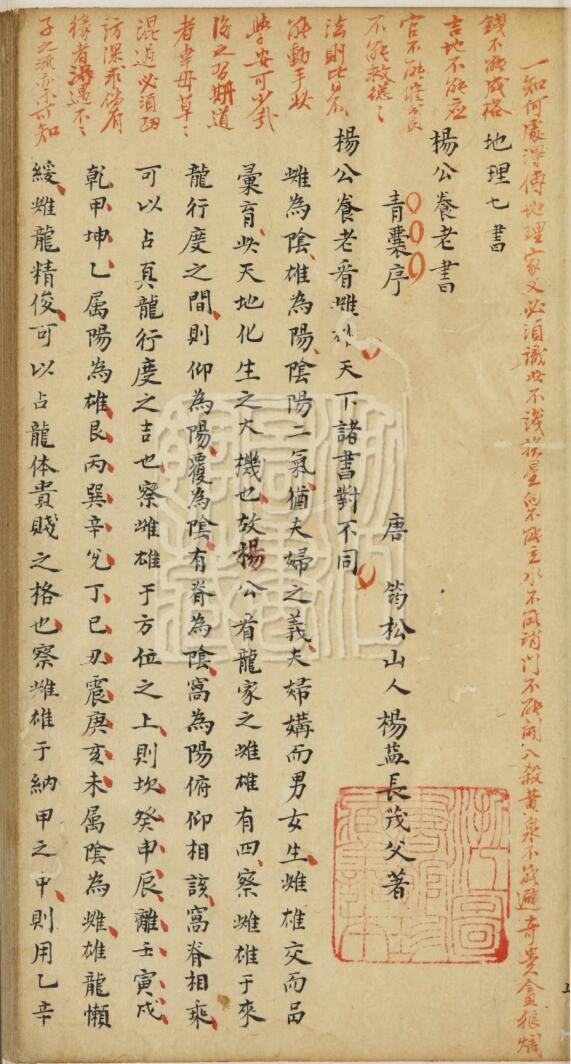 一知何處得傳地理家又必須識此不識
地理七書
楊公養老書
青囊序
唐 筠松山人楊益長茂父著
楊公養老看雌雄天下諸書對不同
雌為陰雄為陽陰陽二氣猶夫婦之義夫婦媾而男女生雌雄交而品
彙育此天地化生之大機也故楊公看龍家之雌雄有四察雌雄于來
龍行度之間則仰為陽覆為陰有脊為陰窩為陽俯仰相該窩脊相乘
可以占真龍行度之吉也察雌雄于方位之上則坎癸申辰離壬寅戌
乾甲坤乙属陽為雄艮丙巽辛兌丁巳丑震庚亥未属陰為雌雄龍懶
緩雌龍精俊可以占龍体貴賤之格也察雌雄于納甲之中則用乙辛
錢不能成格
吉地不能應
官不能催貧
不能救總々
法則比不
能動手此
學安可少哉
後之君期道
者幸毋草々
混過必須細
訪深求倘有
緣者得遇不々
子之派亦未可知
浙江圖書館珍藏善本